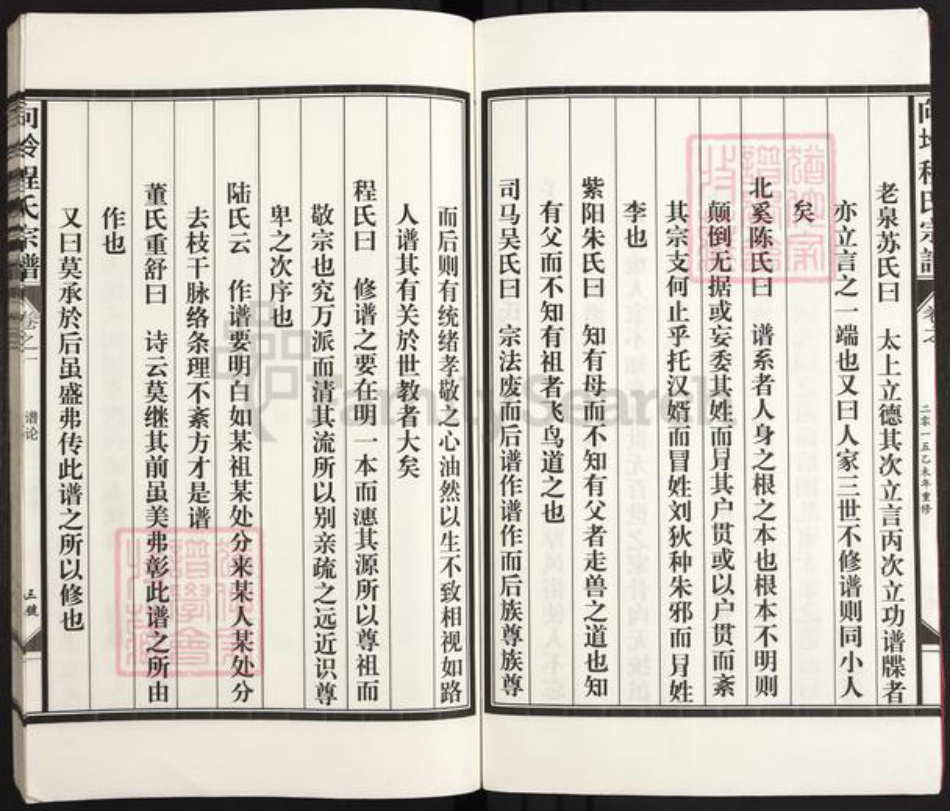 老泉苏氏曰 太上立德其次立言丙次立功谱牒者
亦立言之一端也又曰人家三世不修谱则同小人
矣
北奚陈氏曰 谱系者人身之根之本也根本不明则
颠倒无据或妄委其姓而冐其户贯或以户贯而紊
其宗支何止乎托汉婿而冒姓刘狄种朱邪而冐姓
李也
紫阳朱氏曰 知有母而不知有父者走兽之道也知
有父而不知有祖者飞鸟道之也
司马吴氏曰 宗法废而后谱作谱作而后族尊族尊
二零一五乙未年重修
而后则有统绪孝敬之心油然以生不致相视如路
人谱其有关於世教者大矣
程氏曰 修谱之要在明一本而濾其源所以尊祖而
敬宗也究万派而清其流所以别亲疏之远近识尊
卑之次序也
陆氏云 作谱要明白如某祖某处分来某人某处分
去枝干脉络条理不紊方才是谱
董氏重舒曰 诗云莫继其前虽美弗彰此谱之所由
作也
又曰莫承於后虽盛弗传此谱之所以修也
程氏宗谱
卷之一
谱论
三號
FamilySearch